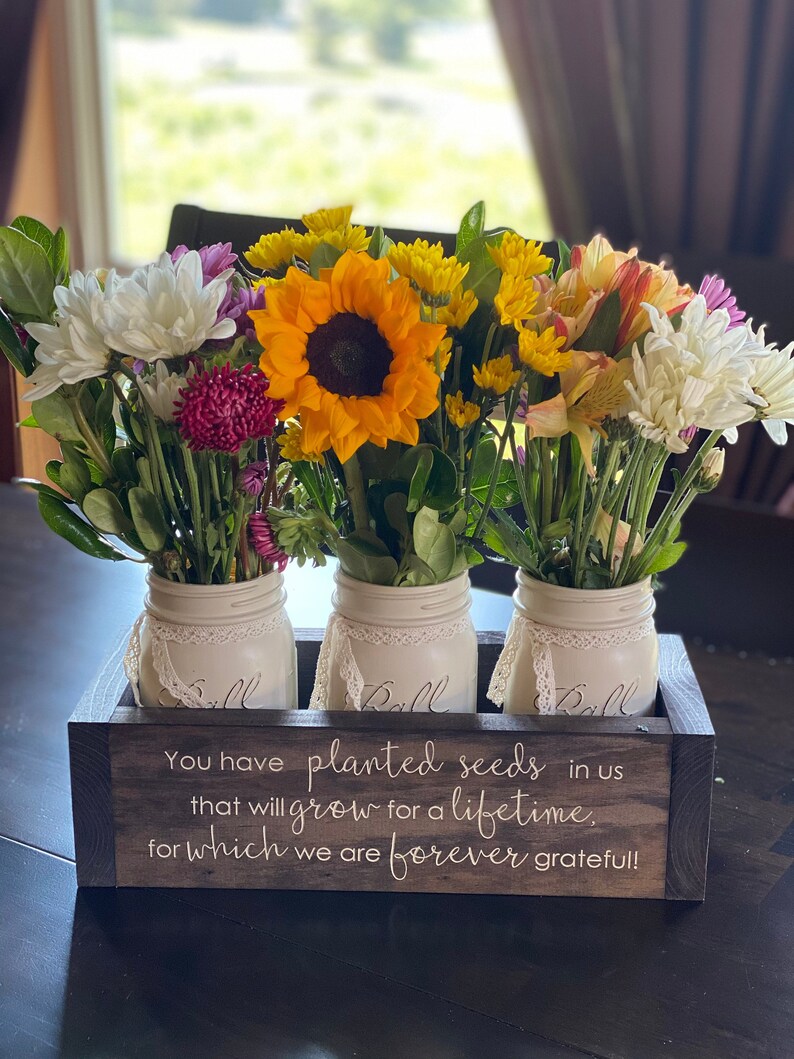 Ball Ball Ball
You have planted seeds in us
that will grow for a lifetime,
for which we are forever grateful!